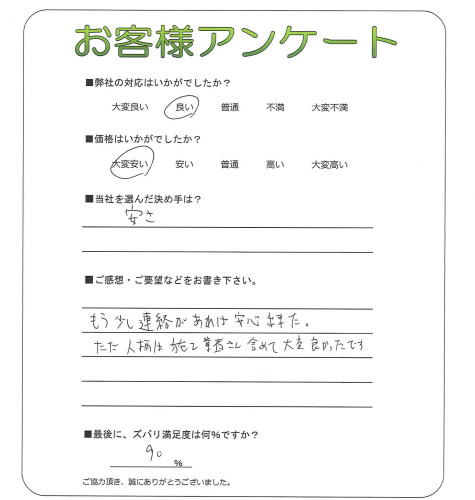 お客様アンケート
■弊社の対応はいかがでしたか？
大変良い 良い 普通 不満 大変不満
■価格はいかがでしたか？
大変安い 安い 普通 高い 大変高い
■当社を選んだ決め手は？
安さ
■ご感想・ご要望などをお書き下さい。
もう少し連絡があれば安心出来た。
ただ人柄は施工業者さん含めて大変良かったです
■最後に、ズバリ満足度は何%ですか？
90 %
ご協力頂き、誠にありがとうございました。